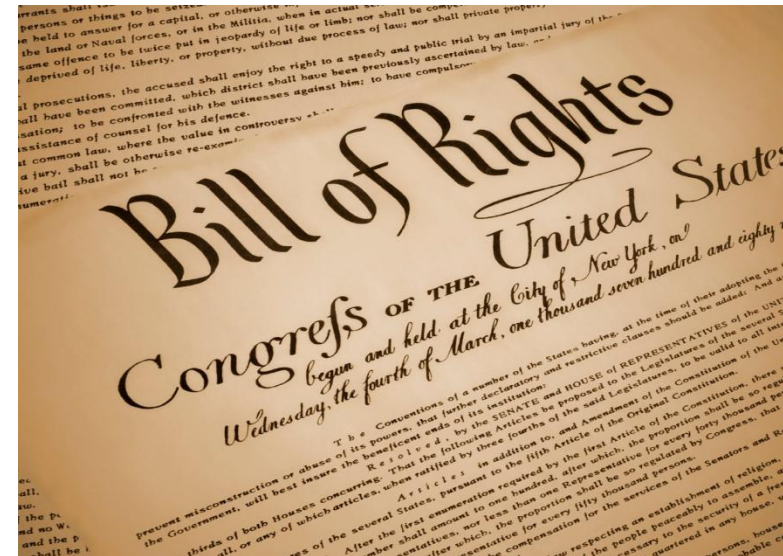 persons or things to be seized
be held to answer for a capital, or otherwise
the land or Naval forces, or in the Militia, when in actual
same offence to be twice put in jeopardy of life or limb; nor shall be
deprived of life, liberty, or property, without due process of law; nor shall private
prosecutions, the accused shall enjoy the right to a speedy and public trial by an impartial jury of the
have been committed, which district shall have been previously ascertained by law,
to be confronted with the witnesses against him; to have
assistance of counsel for his defence.
common law, where the value in controversy
a jury, shall be otherwise
bail shall not be
Bill of Rights
Congreſs OF THE United States
begun and held at the City of New York, on
Wednesday, the fourth of March, one thousand seven hundred and eighty
The Conventions of a number of the States having, at the time of their adopting the
prevent misconstruction or abuse of its powers, that further declaratory and restrictive clauses should be added: And
the Government, will best insure the beneficent ends of its institution:
Resolved, by the SENATE and HOUSE of REPRESENTATIVES of the
thirds of both Houses concurring. That the following Articles be proposed to the Legislatures of the several
all, or any of which articles, when ratified by three fourths of the said Legislatures, to be valid to all
Articles in addition to, and Amendment of the Constitution of the
of the several States, pursuant to the fifth Article of the Original Constitution.
After the first enumeration required by the first Article of the Constitution, there
shall amount to one hundred, after which, the proportion shall be so
nor less than one Representative for every forty thousand
after which, the proportion shall be so regulated by Congress, that
for every fifty thousand persons.
compensation for the services of the Senators and
respecting an establishment of religion,
the people peaceably to assemble,
to the security of a
quartered in any